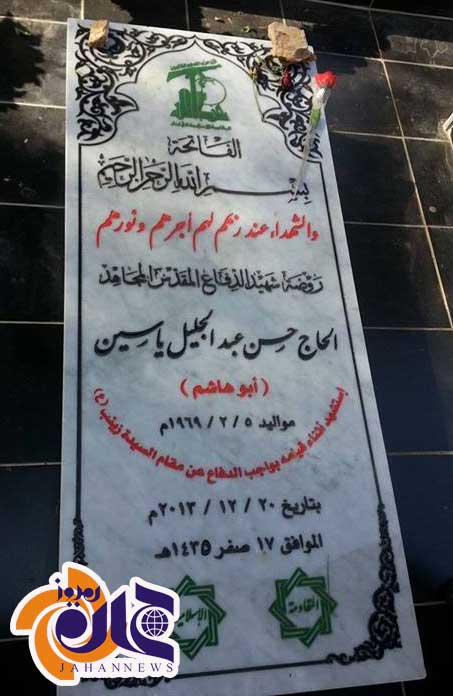 الفاتحة
بسم الله الرحمن الرحيم
والشهداء عند ربهم لهم أجرهم ونورهم
روضة شهيد الدفاع المقدس المجاهد
الحاج حسن عبد الجليل ياسين
(أبو هاشم)
مواليد ٥ / ٢ / ١٩٦٩م
إستشهد أثناء قيامه بواجب الدفاع عن مقام السيدة زينب (ع)
بتاريخ ٢٠ / ١٢ / ٢٠١٣م
الموافق ١٧ صفر ١٤٣٥هـ
المقاومة
الإسلامية
جهان
نیوز
JAHANNEWS